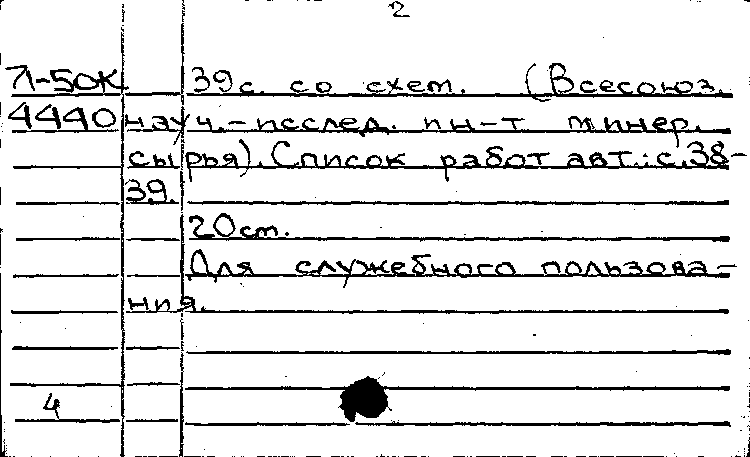 2
Л-50К 39с. со схем. (Всесоюз.
4440 науч.-исслед. ин-т минер.
сырья). Список работ авт.: с. 38-
39.
20 ст.
Для служебного пользова-
ния.
4